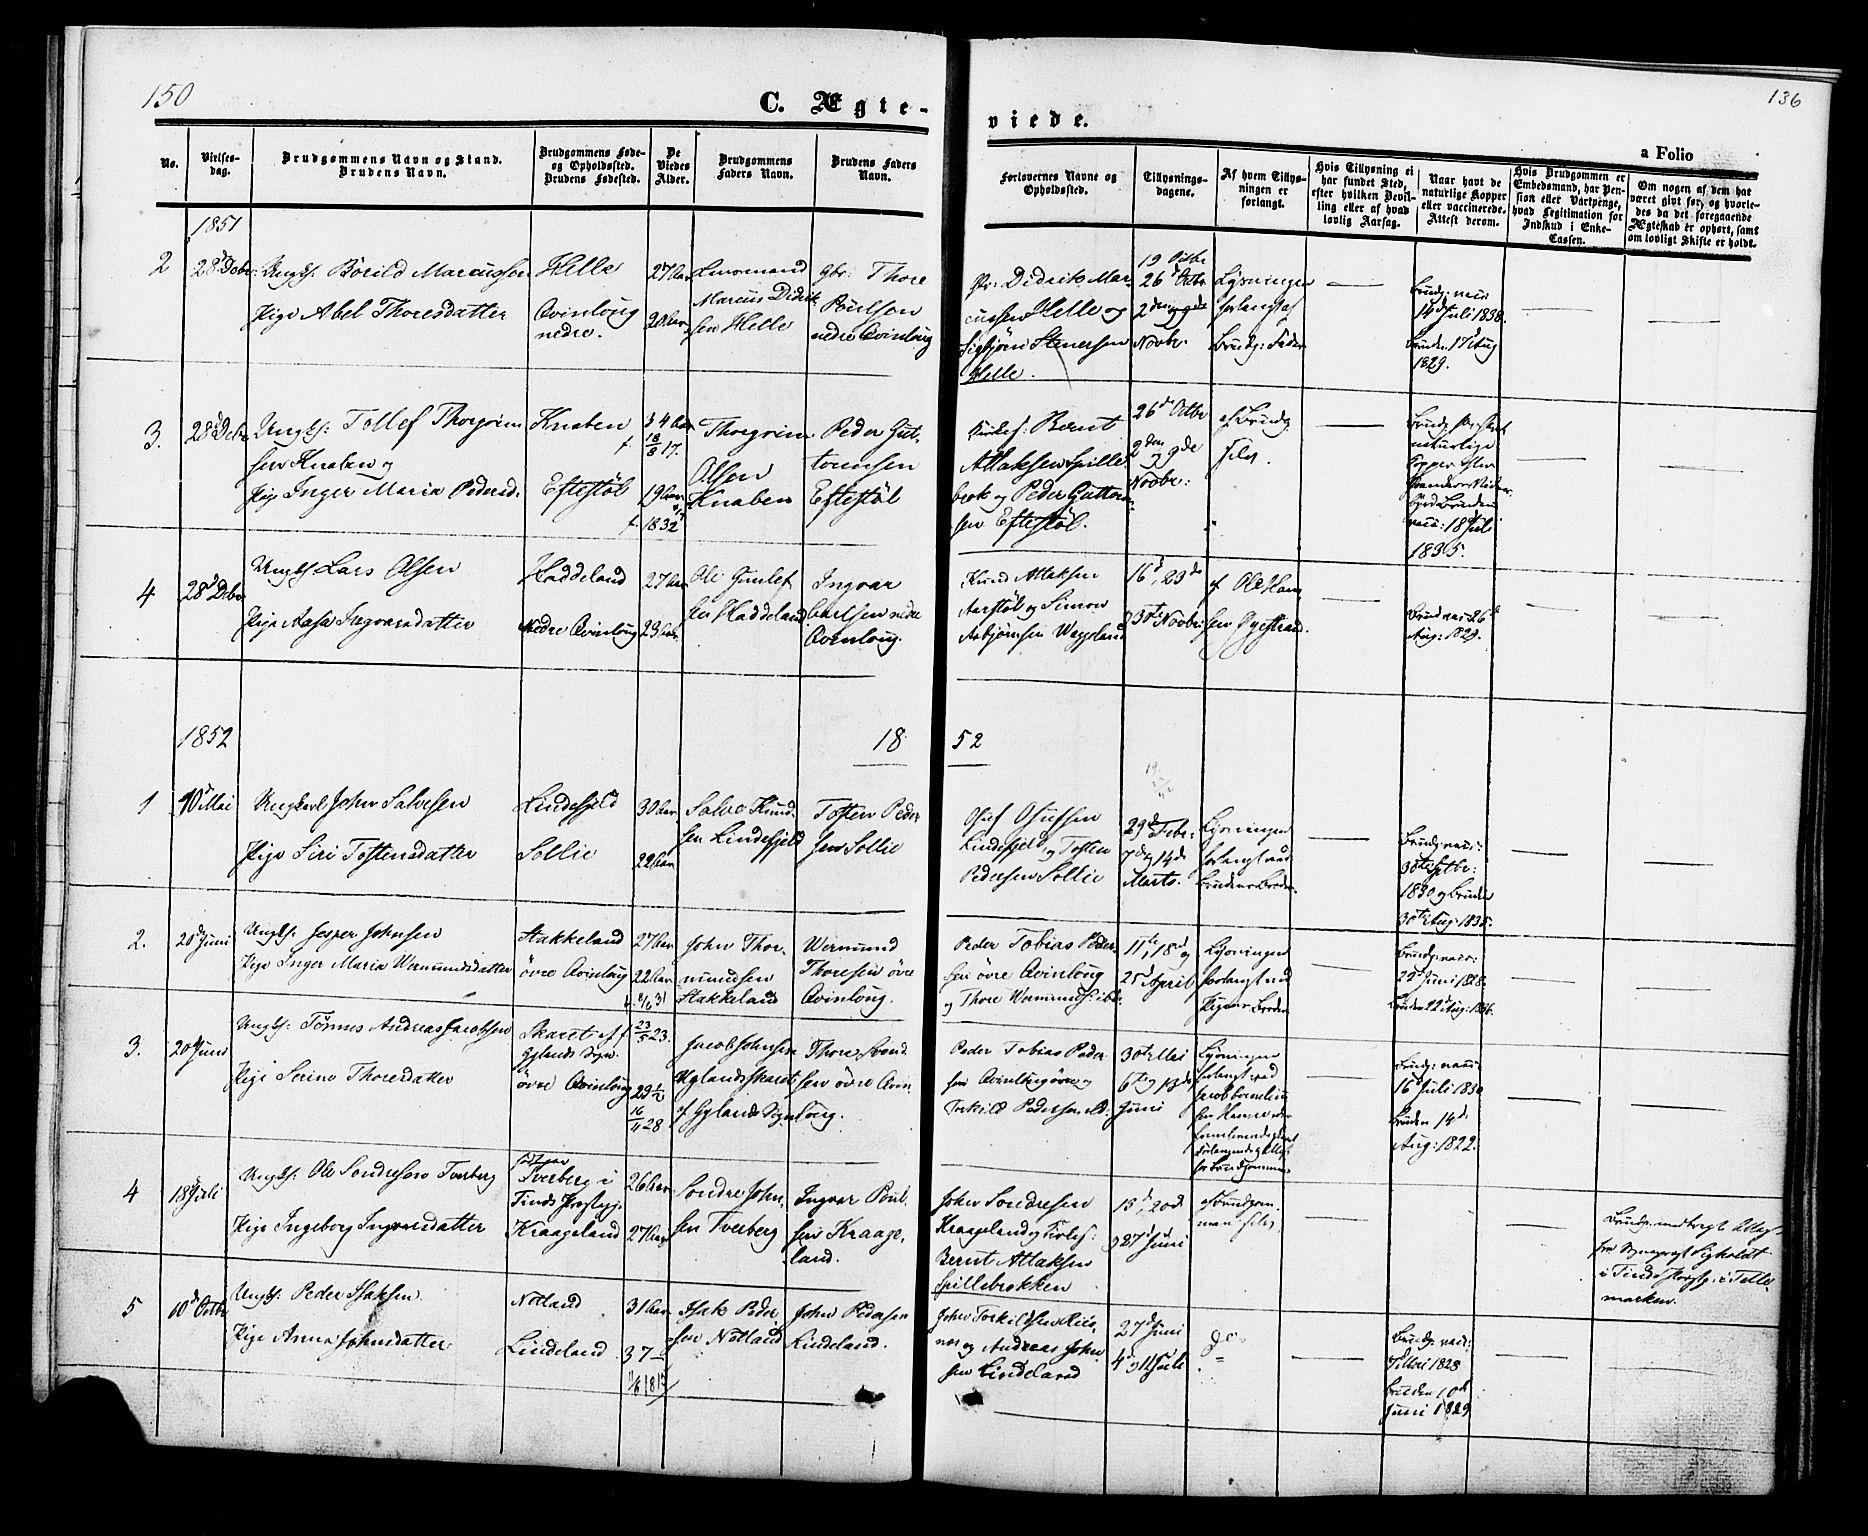 150
136
C. Ægte-
viede.
a Folio
No.
Vielses-
dag.
Brudgommens Navn og Stand.
Brudens Navn.
Brudgommens Føde-
og Opholdssted.
Brudens Fødested.
De
Viedes
Alder.
Brudgommens
Faders Navn.
Brudens Faders
Navn.
Forlovernes Navne og
Opholdssted.
Tillysnings-
dagene.
Af hvem Tillys-
ningen er
forlangt.
Hvis Tillysning ei
har fundet Sted,
efter hvilken Bevil-
ling eller af hvad
lovlig Aarsag.
Naar havt de
naturlige Kopper
eller vaccinerede.
Attest derom.
Hvis Brudgommen er
Embedsmand, har Pen-
sion eller Vartpenge,
hvad Legitimation for
Indskud i Enke-
Cassen.
Om nogen af dem har
været givt før, og hvorle-
des da det foregaaende
Ægteskab er ophørt, samt
om lovligt Skifte er holdt.
1851
2
28d Decbr:
Ungk: Börild Marcussen
Pige Abel Thoresdatter
Helle
Qvinloug
nedre.
27 Aar
20 Aar
Lensmand
Marcus Didrik-
sen Helle
Gbr: Thore
Poulsen
nedre Qvinloug
Didrik Mar-
cussen Helle og
Sigbjörn Stenersen
Helle.
19 Octbr
26d Octbr
2den og 9de
Novbr.
Lysningen
forlangt af
Brudg: Fader
Brudg: vacc
14d Juli 1838.
Bruden 17d Aug
1829.
3.
28d Decbr
Ungk: Tollef Thorgrim
sen Knaben og
Pige Inger Maria Pedersd.
Knaben
Eftestöl
34 Aar
f. 18/8 17.
19 Aar
f. 1832
Thorgrim
Olsen
Knaben
Peder Gut-
tormsen
Eftestöl
Kirkes: Bernt
Attaksen Spille-
brok og Peder Guttorm-
sen Eftestöl.
26d Octbr
2den 9de
Novbr:
af Brudg
selv.
naturlige
Kopper efter
Bruden
vacc: 18d Juli
1835.
4
28d Debr
Ungk Lars Olsen
Pige Aasa Ingvarsdatter
Haddeland
Nedre Qvinloug
27 Aar
23 Aar.
Ole Gunlef
sen Haddeland
Ingvar
Carlsen nedre
Qvinloug.
Knud Attaksen
Aarstöl og Simon
Asbjörnsen Waggeland
16d, 23de
30te Novbr:
af Ole Han
sen Øyestrand.
Brud vacc 26d
Aug: 1829.
1852
18
52
1
10d Mai
Ungkarl John Salvesen
Pige Siri Tostensdatter
Lindefjeld
Sollie
30 Aar
22 Aar
Salve Knud-
sen Lindefjeld
Tosten Peder
sen Sollie
Osuf Osufsen
Lindefjeld, og Tosten
Pedersen Sollie
29d Febr.
7d og 14d
Marts.
Lysningen
forlangt ved
Brudens Broder.
Brudg: vacc:
30te Octbr:
1830 og Bruden
30te Aug: 1835.
2.
20d Juni
Ungk. Jesper Johnsen
Pige Inger Maria Wermundsdatter
Stakkeland
övre Qvinloug
27 Aar
22 Aar
John Thor-
mundsen
Stakkeland
Wermund
Thoresen övre
Qvinloug.
Peder Tobias Peder-
sen övre Qvinloug
og Thore Wermunds: ibd.
11te, 18d og
25d April
Lysningen
forlangt ved
Pigens Broder
Brudg: vacc:
29d Juni 1828
Bruden 22d Aug: 1836.
3.
20d Juni
Ungk: Tönnes Andreas Jacobsen
Pige Serine Thoresdatter
Skaret af
Gylands Sogn.
övre Qvinloug
f. 23/5 23.
23 1/2
16/11 28
Jacob Johnsen
Nylandsskaret
af Gylands Sogn
Thore Svend-
sen övre Qvin
loug.
Peder Tobias Peder
sen Qvinloug övre og
Torkild Pedersen ibd:
30te Mai
6te og 13de
Juni
Lysningen
forlangt ved
Jacob Cornelius
sen
Brudg: vacc:
16d Juli 1830
Bruden 14d
Aug: 1822.
4
18d Juli
Ungk: Ole Sondresen Tverberg
Pige Ingeborg Ingvarsdatter
Tverberg i
Tinds Præstegj.
Kraageland
26 Aar
27 Aar
Sondre John-
sen Tverberg
Ingvar Poul-
sen Kraage-
land.
John Sondresen
Kraageland og Kirkes:
Bernt Attaksen
Spillebrokken
13d, 20de
og 27d Juni
af Brudgom-
men selv
Brudg. medbragt Attest
fra Sogneprest Sigholdt
i Tinds Præstegj. i Telle-
marken.
5
10d Octbr
Ungk: Peder Isaksen.
Pige Anna Johnsdatter
Netland
Lindeland
31 Aar
37
11/6 1815
Isak Peder-
sen Netland
John Pedersen
Lindeland.
John Torkildsen Ræe-
nes og Andreas John-
sen Lindeland
27d Juni
4d og 11d Juli
do
Brudg: vacc:
7d Mai 1828
Bruden 10de
Juni 1829